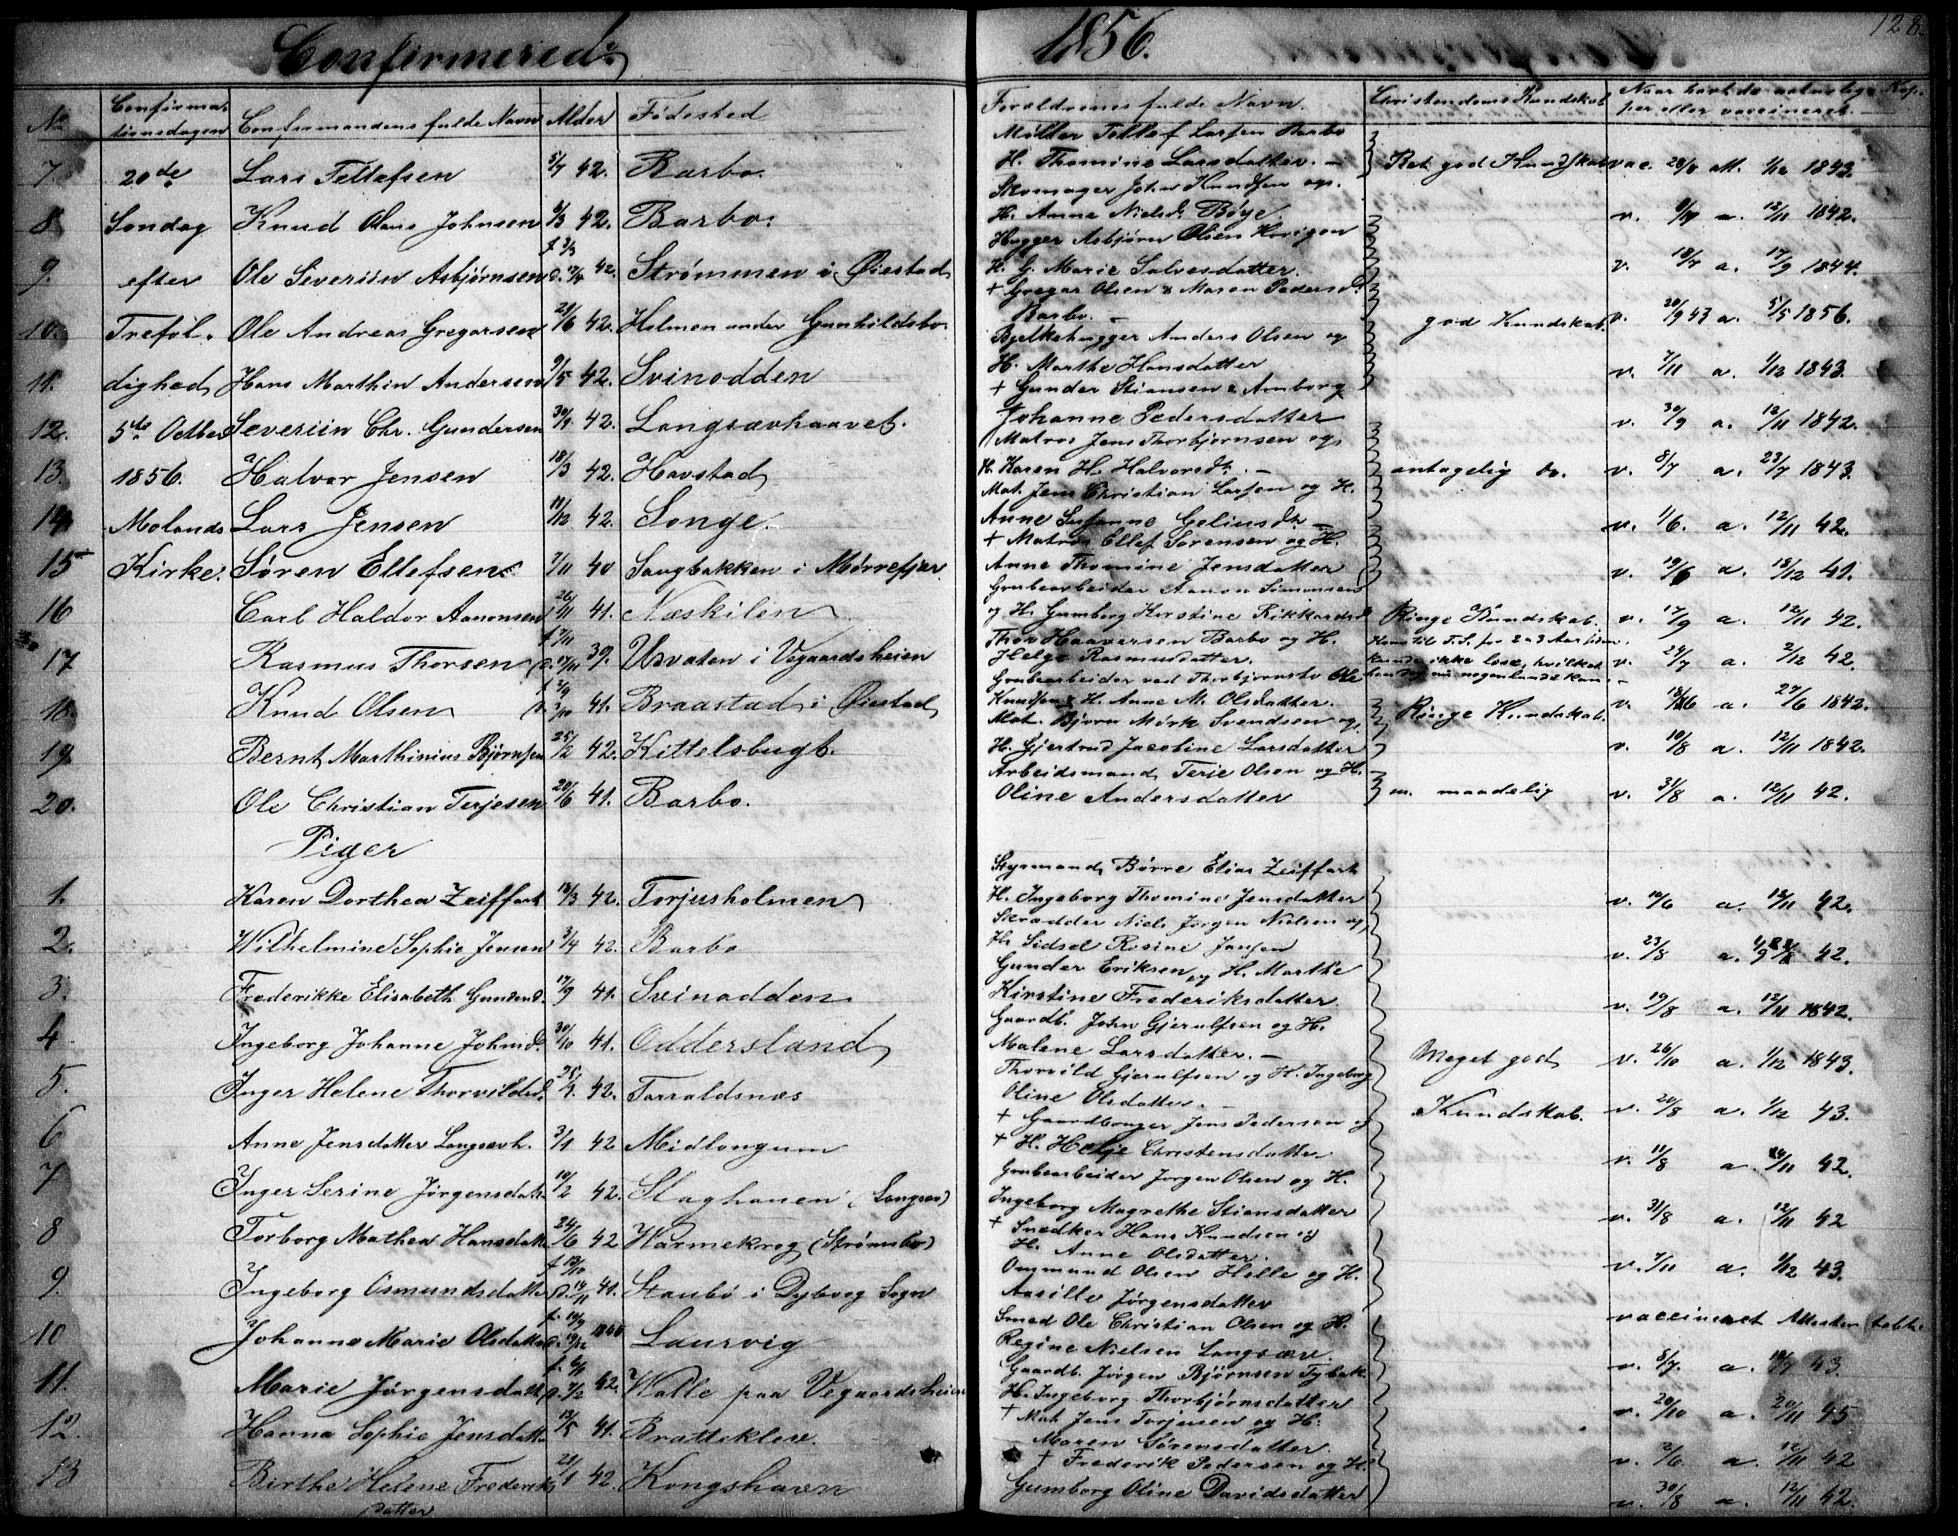 Confirmerede 1856. 128.
No Confirmationsdagen Confirmandens fulde Navn Alder Fødested Forældrenes fulde Navn. Christendoms Kundskab Naar havt de naturlige Kopper eller vaccineret.
Møller Tellef Larsen Barbo
7. 20de Lars Tellefsen 5/7 42. Barbo. H. Thomine Larsdatter. — Ret god Kundskab vac. att. 1/12 1843.
Skomager John Knudsen og
8. Søndag Knud Olaus Johnsen 42. Barbo. H. Anne Nielsd. Bøye. v. a. 12/11 1842.
Hugger Asbjørn Olsen
9. efter Ole Severiin Asbjørnsen 42. Strømmen i Øiestad H. G. Marie Salvesdatter. v. 18/7 a. 17/9 1844.
+ Gregar Olsen & Maren Pedersd.
10. Trefol- Ole Andreas Gregersen 21/6 42. Holmen under Gunhildsbo. Barbo. — god Kundskab. v. 20/9 43 a. 5/5 1856.
Bjelkehugger Anders Olsen og
11. dighed Hans Marthin Andersen 9/5 42. Svinodden H. Marthe Hansdatter v. 7/11 a. 1/12 1843.
+ Gunder Stiansen & Amborg
12. 5te Octber Severiin Chr. Gundersen 30/4 42. Langsævhaavet. Johanne Pedersdatter v. 30/9 a. 12/11 1842.
Matros Jens Thorbjørnsen og
13. 1856. Halvor Jensen 18/3 42. Havstad H. Karen H. Halvorsdr. — antagelig do. v. 8/7 a. 23/7 1843.
Mat. Jens Christian Larsen og H.
14 Molands Lars Jensen 11/12 42. Songe. Anne Susanne Geliusdr — v. 1/6. a. 12/11 42.
+ Matros Ellef Sørensen og H.
15 Kirke. Søren Ellefsen 7/11 40 Saugbakken i Mørrefjær. Anne Thomine Jensdatter v. 19/6 a. 18/12 41.
Grubearbeider Aanon Simonsen
16 Carl Haldor Aanonsen 26/11 41. Næskilen og H. Gumborg Kirstine Rikkardsd. Ringe Kundskab. v. 17/9 a. 12/11 42.
Thor Haaversen Barbo og H.
17 Rasmus Thorsen f. 7/11 d. 17/11 39. Ubvaten i Vegaardsheien Helge Rasmusdatter. kunde ikke læse, hvilket v. 24/7 a. 2/12 42.
Grubearbeider ved Thorbjørnsbo Ole
18. Knud Olsen 41. Braastad i Øiestad Knudsen & H. Anne M. Olsdatter. Ringe Kundskab. v. a. 27/6 1842.
Mat. Bjørn Mørk Svendsen og
19. Bernt Marthinius Bjørnsen 25/2 42. Kittelsbugt. H. Gjertrud Jacobine Larsdatter v. 10/8 a. 12/11 1842.
Arbeidsmand Terje Olsen og H.
20. Ole Christian Terjesen 20/6 41. Barbo. Oline Andersdatter m. maadelig v. 31/8 a. 12/11 42.
Piger
Styrmand Børre Elias Zeiffart
1. Karen Dorthea Zeiffart 18/3 42. Torjusholmen H. Ingeborg Thomine Jensdatter v. 10/6 a. 12/11 42.
Skrædder Niels Jørgen Nielsen og
2. Wilhelmine Sophie Jensen 3/4 42. Barbo H. Sidsel Rosine Jansen v. 23/8 a. 42.
Gunder Eriksen og H. Marthe
3. Frederikke Elisabeth Gundersd. 17/9 41. Svinodden Kirstine Frederiksdatter v. 19/8 a. 12/11 1842.
Gaardb. John Gjerulfsen og H.
4 Ingeborg Johanne Johnsd. 30/10 41. Oddersland Malene Larsdatter. — Meget god v. 26/10 a. 1/12 1843.
Thorvild Gjerulfsen og H. Ingeborg
5. Inger Helene Thorvildsd. 42. Torraldsnæs Oline Olsdatter. — Kundskab. v. 20/8 a. 1/12 43.
+ Gaardbruger Jens Pedersen og
6 Anne Jensdatter Langsævh. 3/1 42 Midlongum + H. Helje Christensdatter v. 11/8 a. 42.
Grubearbeider Jørgen Olsen og H.
7 Inger Serine Jørgensdatt. 10/2 42. Slaghanen (Langsæv) Ingeborg Magrethe Stiansdatter v. 31/8 a. 12/11 42
+ Snedker Hans Knudsen og
8 Torborg Mathea Hansdatt. 24/6 42 Warmekrog (Strømsbo) H. Anne Olsdatter. v. 7/11 a. 1/12 43.
Osmund Olsen Helle og H.
9. Ingeborg Osmundsdatter 41. Staubø i Dybvog Sogn Aasille Jørgensdatter vaccineret Attesten tabt.
Smed Ole Christian Olsen og H.
10 Johanne Marie Olsdatter Laurvig Regine Nielsen Langsæe. v. 8/7. a. 43.
Gaardb. Jørgen Bjørnsen Tybak
11. Marie Jørgensdatt. 42. Walle paa Vegaardsheien H. Ingeborg Thorbjørnsdatter v. 20/10 a. 20/11 45
+ Mat. Jens Torjusen og H.
12. Hanna Sophie Jensdatt. 13/5 41. Bratteklev. Maren Sørensdatter. v. 2/6 a. 12/11 42
+ Frederik Pedersen og H.
13 Birthe Helene Frederiks 21/1 42. Kongshavn Gumborg Oline Davidsdatter v. 30/8 a. 12/11 42.
datter